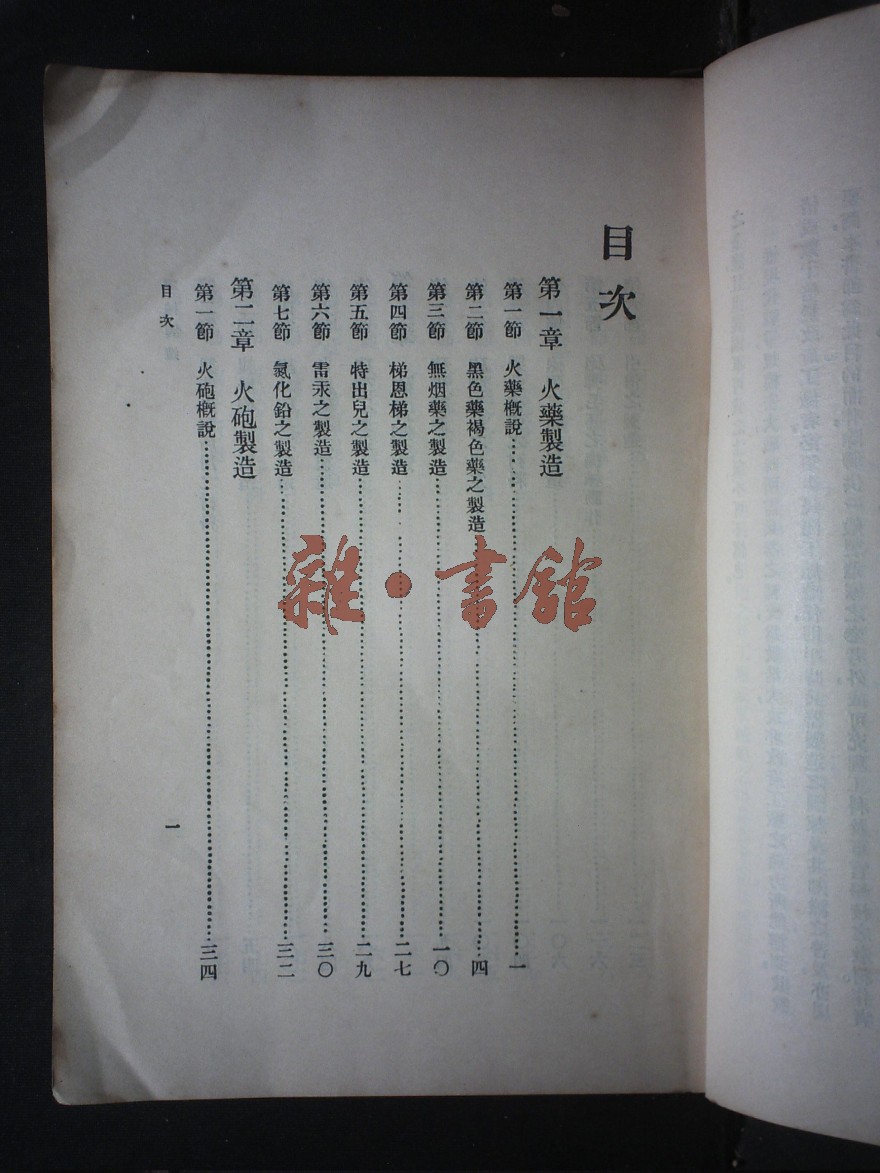 目次
第一章　火藥製造
第一節　火藥概說……一
第二節　黑色藥褐色藥之製造……四
第三節　無烟藥之製造……一〇
第四節　梯恩梯之製造……二七
第五節　特出兒之製造……二九
第六節　雷汞之製造……三〇
第七節　氮化鉛之製造……三二
第二章　火砲製造
第一節　火砲概說……三四
目次
一
雜·書館